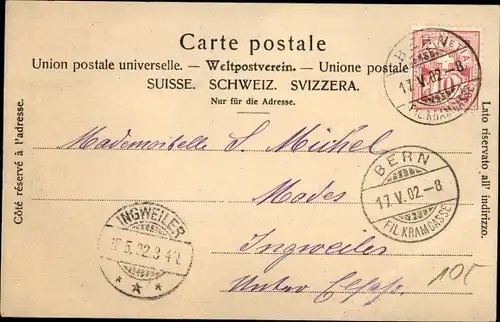 Carte postale
Union postale universelle. — Weltpostverein. — Unione postale
SUISSE. SCHWEIZ. SVIZZERA.
Nur für die Adresse.
Côté réservé à l'adresse.
Lato riservato all' indirizzo.
HELVETIA
10
BERN
17.V.02–8
FIL.KRAMGASSE
Mademoiselle S. Michel
Modes
Ingweiler
Unter Elsass
BERN
17.V.02–8
FIL.KRAMGASSE
INGWEILER
5.02.3
105